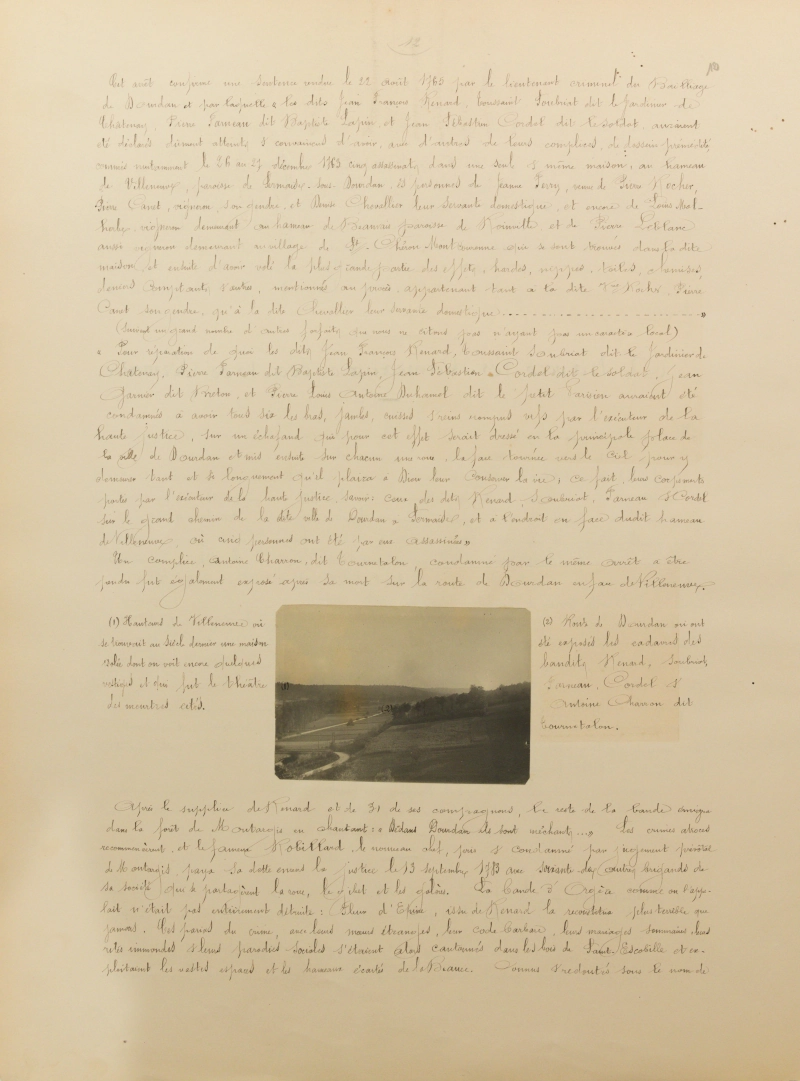 12
Cet arrêt confirme une sentence rendue le 22 août 1765 par le lieutenant criminel du Bailliage
de Dourdan et par laquelle « les dits Jean François Renard, Toussaint Soubriat dit le Jardinier de
Châtenay, Pierre Farneau dit Baptiste Lapin, et Jean Sébastien Cordel dit le soldat avaient
été déclarés dûment atteints & convaincus d'avoir, avec d'autres de leurs complices, de dessein prémédité
commis nuitamment le 26 au 27 décembre 1763 cinq assassinats dans une seule & même maison, au hameau
de Villeneuve, paroisse de Sermaise-sous-Dourdan, ès personnes de Jeanne Ferry, veuve de Pierre Rocher,
Pierre Canet, vigneron, son gendre, et Denise Chevillier leur servante domestique, et encore de Louis
vigneron demeurant au hameau de Beauvais paroisse de Roinville et de Pierre Leblanc
aussi vigneron demeurant au village de St Chéron-Montcouronne qui se sont trouvés dans la dite
maison, et ensuite d'avoir volé la plus grande partie des effets, hardes, nippes, toiles,
deniers comptants & autres, mentionnés au procès, appartenant tant à la dite Vve Rocher, Pierre
Canet son gendre, qu'à la dite Chevillier leur servante domestique ........................ »
(Suivent un grand nombre d'autres forfaits que nous ne citons pas n'ayant pas un caractère local)
« Pour réparation de quoi les dits Jean François Renard, Toussaint Soubriat dit le Jardinier de
Châtenay, Pierre Farneau dit Baptiste Lapin, Jean Sébastien Cordel dit le soldat, Jean
Garnier dit Breton, et Pierre Louis Antoine Duhamel dit le petit Parisien auraient été
condamnés à avoir tous six les bras, jambes, cuisses & reins rompus vifs par l'exécuteur de la
haute justice, sur un échafaud qui pour cet effet serait dressé en la principale place de
la ville de Dourdan et mis ensuite sur chacun une roue, la face tournée vers le ciel pour y
demeurer tant et si longuement qu'il plaira à Dieu leur conserver la vie; ce fait, leurs corps morts
portés par l'exécuteur de la haute justice, savoir: ceux des dits Renard, Soubriat, Farneau & Cordel
sur le grand chemin de la dite ville de Dourdan à Sermaise, et à l'endroit en face dudit hameau
de Villeneuve, où cinq personnes ont été par eux assassinées »
Un complice, Antoine Charron, dit Tournetalon, condamné par le même arrêt à être
pendu fut également exposé après sa mort sur la route de Dourdan en face de Villeneuve.
(1) Hauteurs de Villeneuve où
se trouvait au siècle dernier une maison
isolée dont on voit encore quelques
vestiges et qui fut le théâtre
des meurtres cités.
(1)
(2)
(2) Route de Dourdan où ont
été exposés les cadavres des
bandits Renard, Soubriat,
Farneau, Cordel &
Antoine Charron dit
Tournetalon.
Après le supplice de Renard et de 31 de ses compagnons, le reste de la bande émigra
dans la forêt de Montargis en chantant: « Dedans Dourdan ils sont méchants...» Les crimes atroces
recommencèrent, et le fameux Robillard, le nouveau chef, pris & condamné par jugement prévôtal
de Montargis, paya sa dette envers la justice le 13 septembre 1783 avec soixante dix autres brigands de
sa société qui se partagèrent la roue, le gibet et les galères. La bande d'Orgères comme on l'appe-
lait n'était pas entièrement détruite: Fleur d'Epine, issu de Renard la reconstitua plus terrible que
jamais. Ces parias du crime, avec leurs mœurs étranges, leur code barbare, leurs mariages sommaires, leurs
rites immondes & leurs parodies sociales s'étaient alors cantonnés dans les bois de Saint-Escobille et ex-
ploitaient les vastes espaces et les hameaux écartés de la Beauce. Connus & redoutés sous le nom de